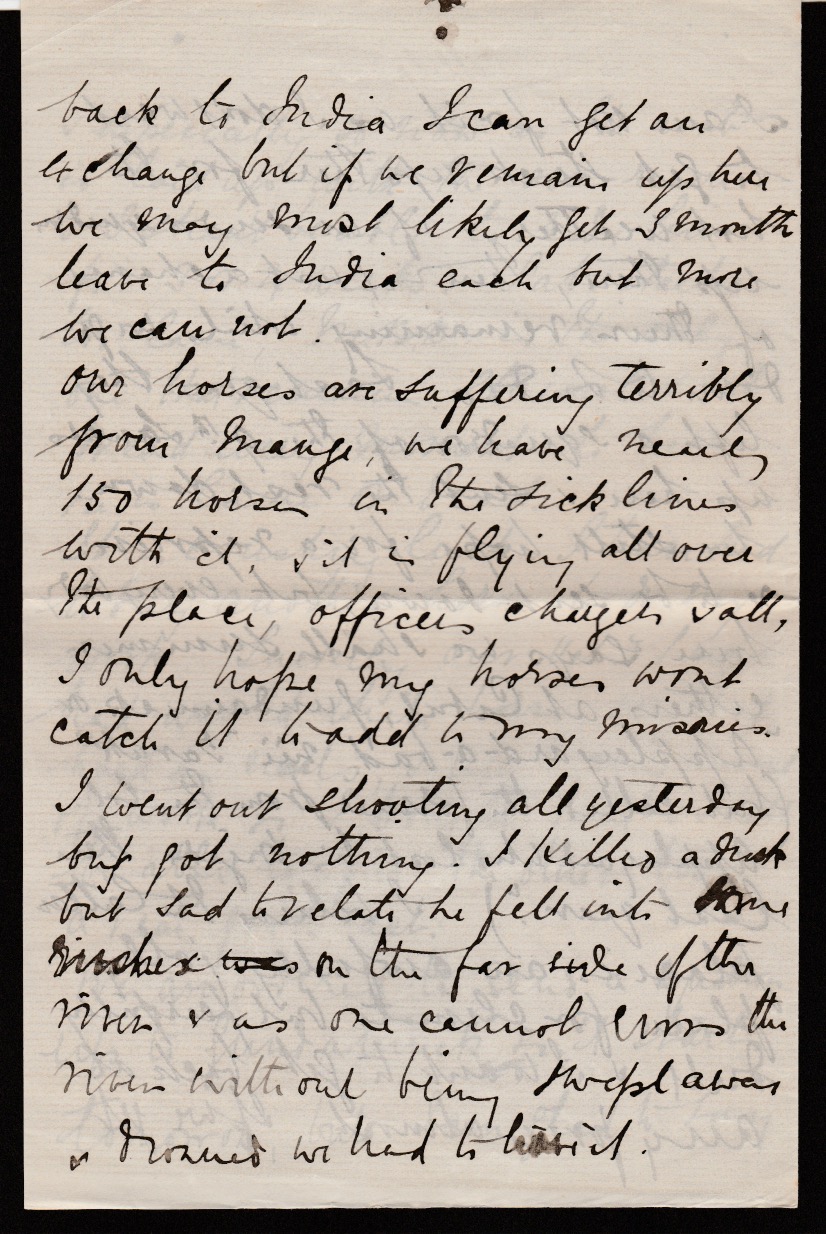 back to India I can get an
exchange but if we remain up here
we may most likely get 3 month
leave to India each but more
we can not.
our horses are suffering terribly
from Mange, we have nearly
150 horses in the sick lines
with it, & it is flying all over
the place, officers chargers & all,
I only hope my horses wont
catch it to add to my miseries.
I went out shooting all yesterday
but got nothing. I killed a duck
but sad to relate he fell into some
rushes was on the far side of the
river & as one cannot cross the
river without being swept away
& drowned we had to leave it.